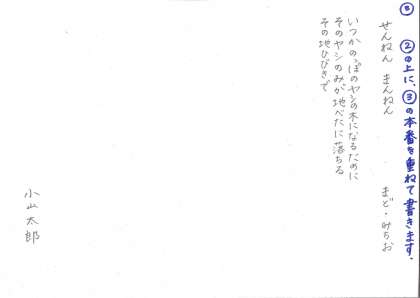 ⑤ ②の上に、③の本番を重ねて書きます。
せんねん まんねん まど・みちお
いつかのっぽのヤシの木になるために
そのヤシのみが地べたに落ちる
その地ひびきで
小山太郎